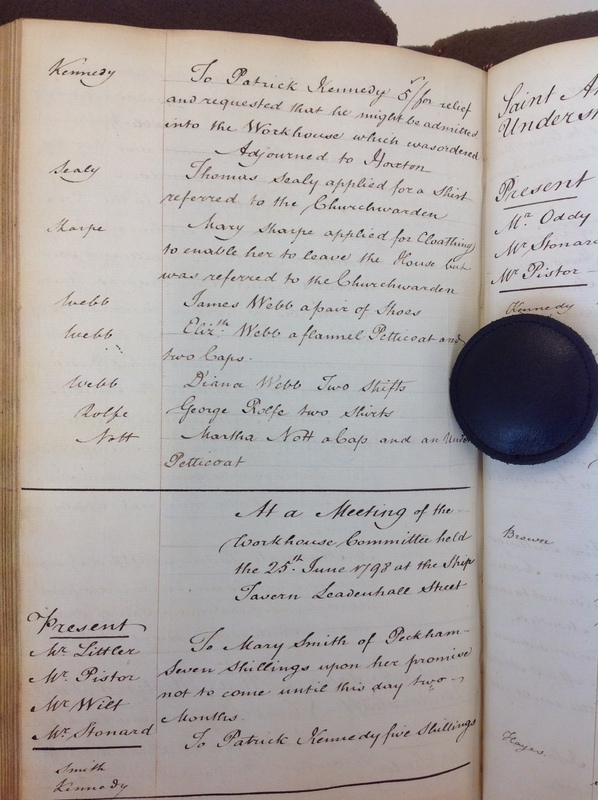 Kennedy
To Patrick Kennedy 5/ for relief
and requested that he might be admitted
into the Workhouse which was ordered
Adjourned to Hoxton
Sealy
Thomas Sealy applied for a Shirt
referred to the Churchwarden
Sharpe
Mary Sharpe applied for Cloathing
to enable her to leave the House but
was referred to the Churchwarden
Webb
James Webb a pair of Shoes
Webb
Elizth. Webb a flannel Petticoat and
two Caps.
Webb
Diana Webb Two Shifts
Rolfe
George Rolfe two Shirts
Nott
Martha Nott a Cap and an Under
Petticoat
At a Meeting of the
Workhouse Committee held
the 25th. June 1798 at the Ship
Tavern Leadenhall Street
Present
Mr. Littler
Mr. Pistor
Mr. Wilt
Mr. Stonard
Smith
To Mary Smith of Peckham
Seven Shillings upon her promise
not to come until this day two
Months.
Kennedy
To Patrick Kennedy five Shillings
Saint
Present
Mr. Oddy
Mr. Stonard
Mr. Pistor
Kennedy
Brewer
Hayes